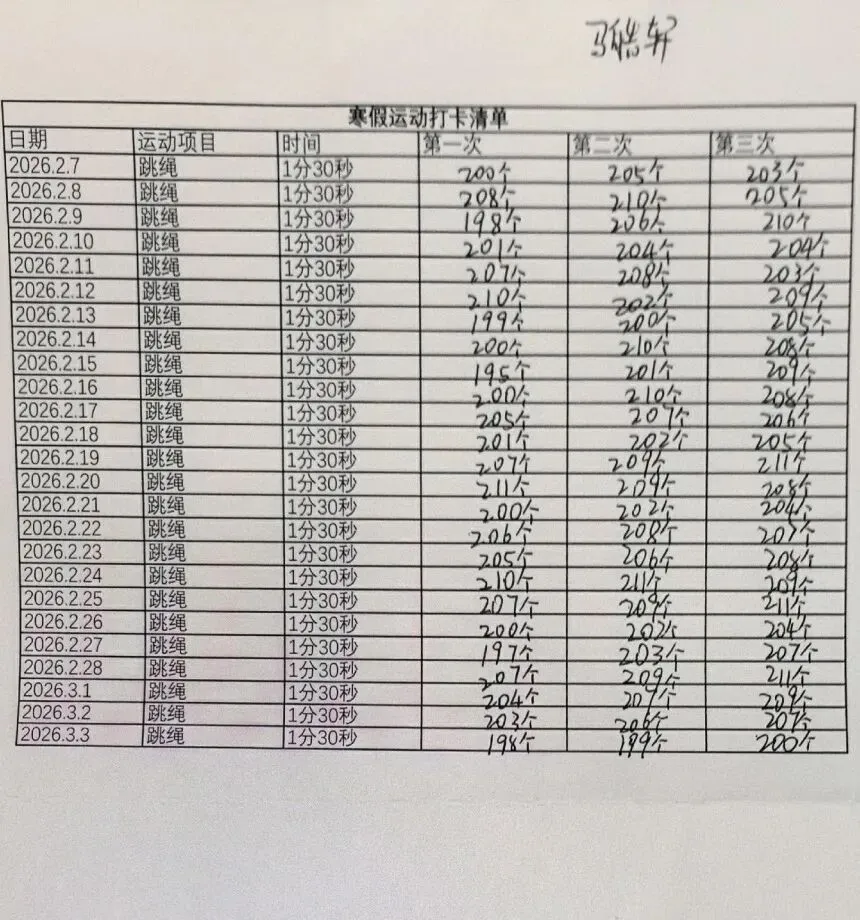 马皓轩
寒假运动打卡清单
日期 运动项目 时间 第一次 第二次 第三次
2026.2.7 跳绳 1分30秒 200个 205个 203个
2026.2.8 跳绳 1分30秒 208个 210个 205个
2026.2.9 跳绳 1分30秒 198个 206个 210个
2026.2.10 跳绳 1分30秒 201个 204个 204个
2026.2.11 跳绳 1分30秒 207个 208个 203个
2026.2.12 跳绳 1分30秒 210个 202个 209个
2026.2.13 跳绳 1分30秒 199个 200个 205个
2026.2.14 跳绳 1分30秒 200个 210个 208个
2026.2.15 跳绳 1分30秒 195个 201个 209个
2026.2.16 跳绳 1分30秒 200个 210个 208个
2026.2.17 跳绳 1分30秒 205个 207个 206个
2026.2.18 跳绳 1分30秒 201个 202个 205个
2026.2.19 跳绳 1分30秒 207个 209个 211个
2026.2.20 跳绳 1分30秒 211个 209个 208个
2026.2.21 跳绳 1分30秒 200个 202个 204个
2026.2.22 跳绳 1分30秒 206个 208个 207个
2026.2.23 跳绳 1分30秒 205个 206个 208个
2026.2.24 跳绳 1分30秒 210个 211个 209个
2026.2.25 跳绳 1分30秒 207个 209个 211个
2026.2.26 跳绳 1分30秒 200个 202个 204个
2026.2.27 跳绳 1分30秒 197个 203个 207个
2026.2.28 跳绳 1分30秒 207个 209个 211个
2026.3.1 跳绳 1分30秒 204个 207个 209个
2026.3.2 跳绳 1分30秒 203个 206个 207个
2026.3.3 跳绳 1分30秒 198个 199个 200个